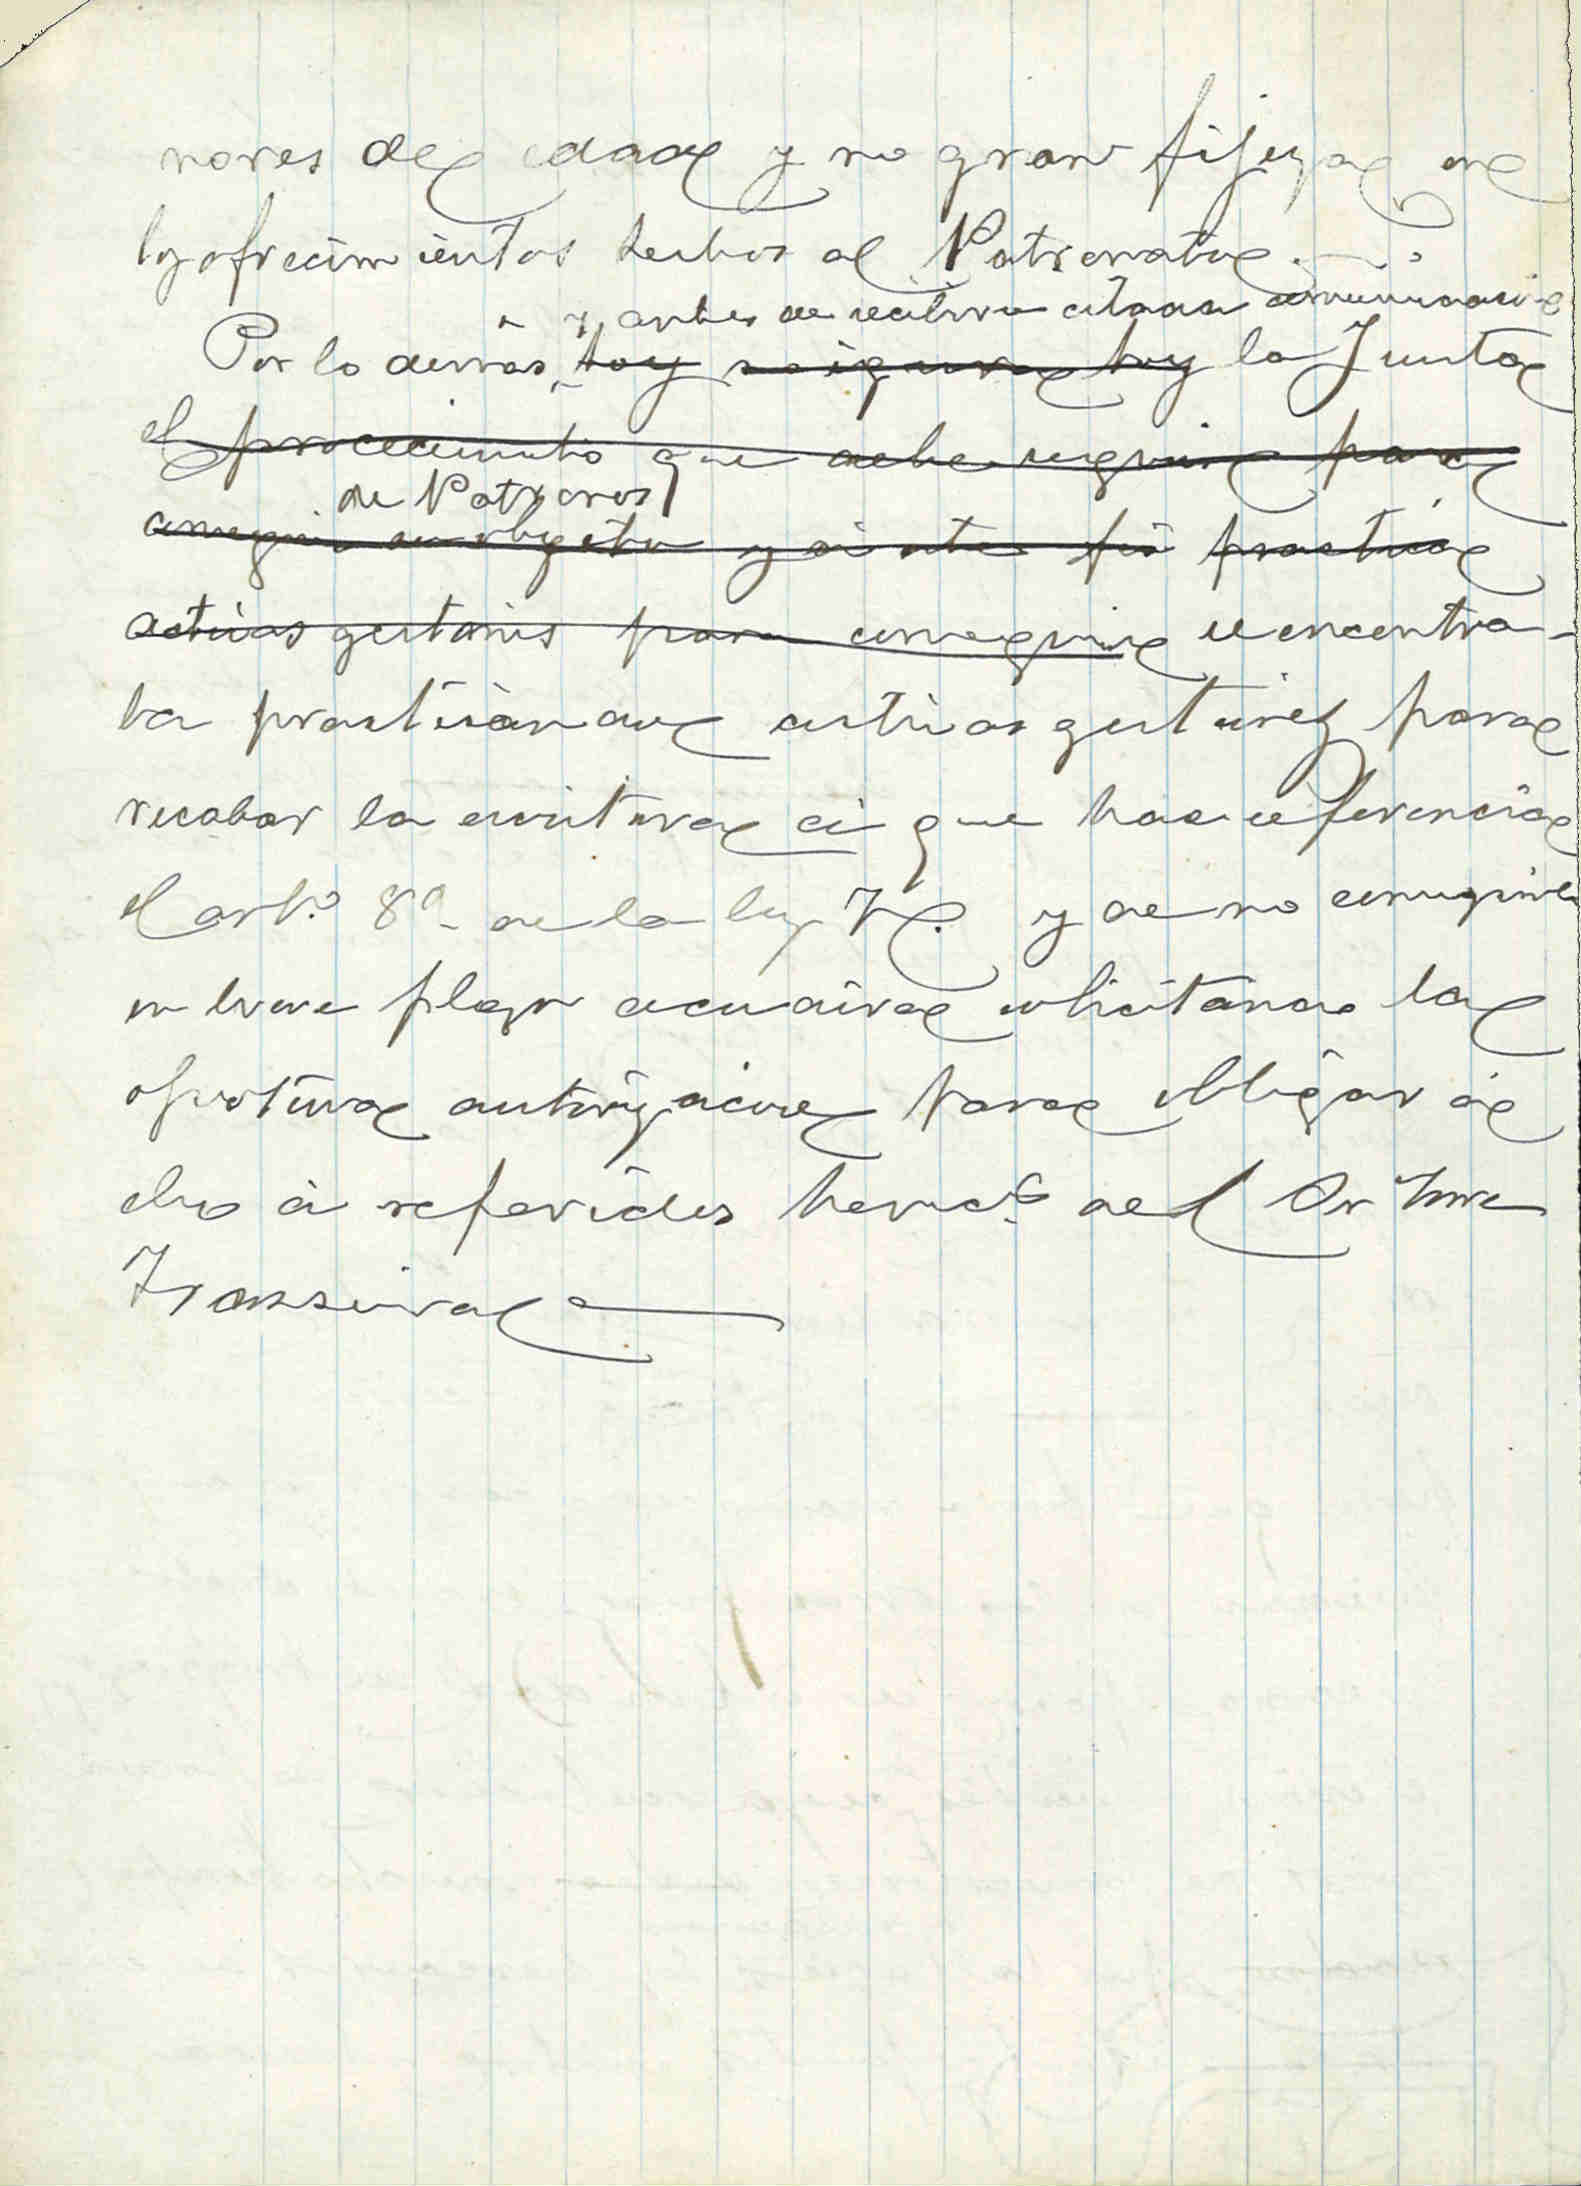 nores de edad y no gran fijeza de
los ofrecimientos hechos al Patronato.
y antes de recibir citada comunicación
Por lo demás, hoy se ignora hoy la Junta
el procedimiento que debe seguirse para
de Patronos
conseguir su objeto y si este fin practica
activas gestiones para conseguir se encontra-
ba practicando activas gestiones para
recabar la escritura á que hace referencia
el artº. 8º de la ley y de no conseguirlo
en breve plazo acudirá solicitando la
oportuna autorización para obligar á
ello á referidos hered.s del Sr